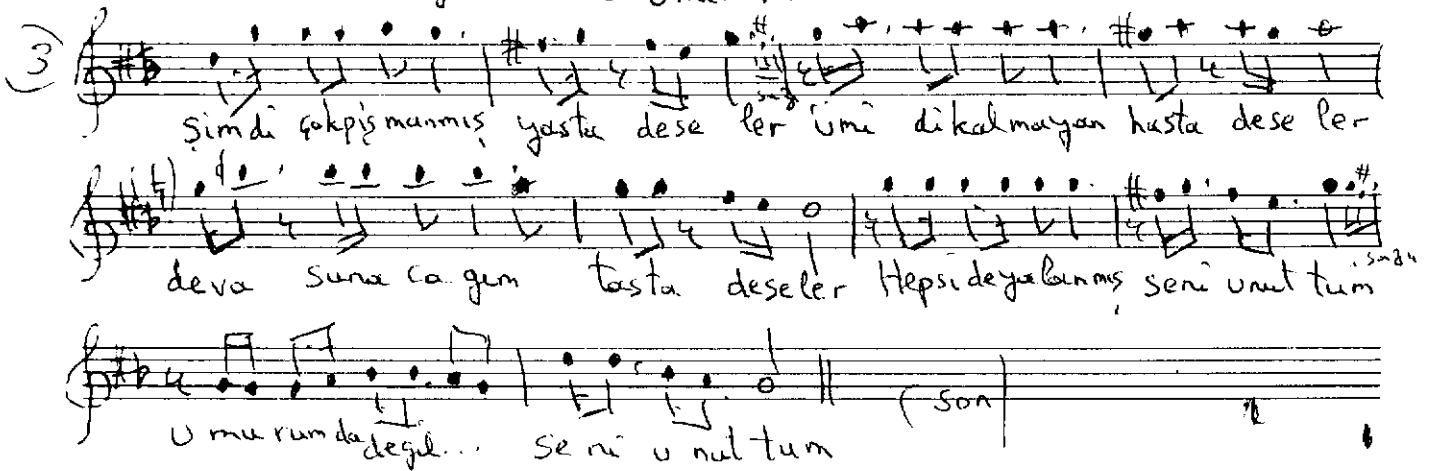 3)
Şimdi çokpişmanmış yasta dese ler ümi dikalmayan hasta dese ler
deva suna ca gım tasta deseler Hepsideyalanmış seni unut tum
U mu rum da değil... se ni u nut tum
(son